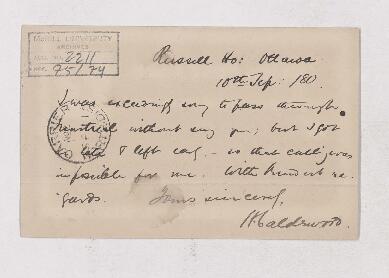 McGILL UNIVERSITY
ARCHIVES
ACC. NO. 2211
REF. 75/74
Russell Ho: Ottawa
10th Sep: 180
I was exceedingly sorry to pass through
Montreal without seeing you; but I got
in late & left early - so that calling was
impossible for me. With kindest re-
gards.
Yours sincerely,
CARRIER